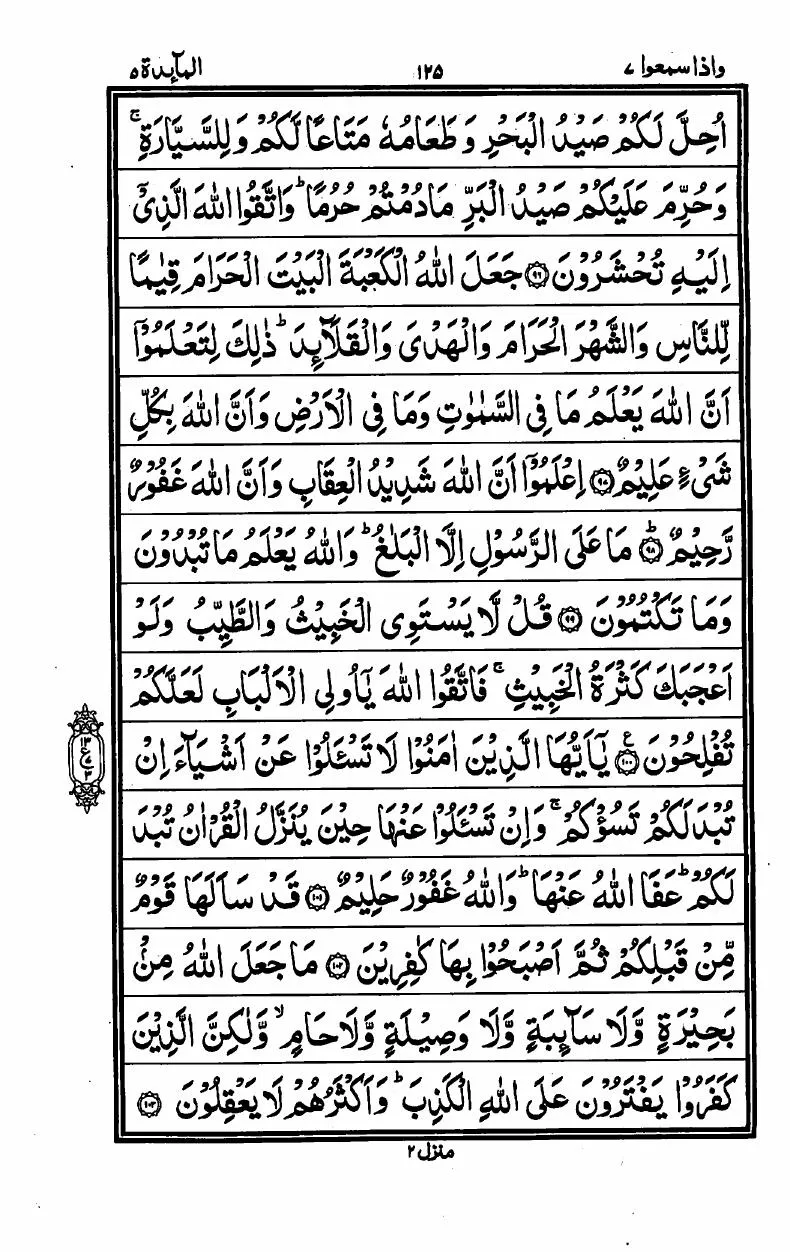 واذا سمعوا ٧ ١٢٥ المآئدة ٥
اُحِلَّ لَكُمْ صَيْدُ الْبَحْرِ وَطَعَامُهٗ مَتَاعًا لَّكُمْ وَلِلسَّيَّارَةِ ۚ
وَحُرِّمَ عَلَيْكُمْ صَيْدُ الْبَرِّ مَا دُمْتُمْ حُرُمًا ؕ وَاتَّقُوا اللّٰهَ الَّذِیْۤ
اِلَيْهِ تُحْشَرُوْنَ ﴿۹۶﴾ جَعَلَ اللّٰهُ الْكَعْبَةَ الْبَيْتَ الْحَرَامَ قِيٰمًا
لِّلنَّاسِ وَالشَّهْرَ الْحَرَامَ وَالْهَدْیَ وَالْقَلَآئِدَ ؕ ذٰلِكَ لِتَعْلَمُوْۤا
اَنَّ اللّٰهَ يَعْلَمُ مَا فِی السَّمٰوٰتِ وَمَا فِی الْاَرْضِ وَاَنَّ اللّٰهَ بِكُلِّ
شَیْءٍ عَلِيْمٌ ﴿۹۷﴾ اِعْلَمُوْۤا اَنَّ اللّٰهَ شَدِيْدُ الْعِقَابِ وَاَنَّ اللّٰهَ غَفُوْرٌ
رَّحِيْمٌ ﴿۹۸﴾ؕ مَا عَلَی الرَّسُوْلِ اِلَّا الْبَلٰغُ ؕ وَاللّٰهُ يَعْلَمُ مَا تُبْدُوْنَ
وَمَا تَكْتُمُوْنَ ﴿۹۹﴾ قُلْ لَّا يَسْتَوِی الْخَبِيْثُ وَالطَّيِّبُ وَلَوْ
اَعْجَبَكَ كَثْرَةُ الْخَبِيْثِ ۚ فَاتَّقُوا اللّٰهَ يٰۤاُولِی الْاَلْبَابِ لَعَلَّكُمْ
تُفْلِحُوْنَ ﴿۱۰۰﴾ع يٰۤاَيُّهَا الَّذِيْنَ اٰمَنُوْا لَا تَسْـَٔلُوْا عَنْ اَشْيَآءَ اِنْ
١٣ ع ٧ ٣
تُبْدَ لَكُمْ تَسُؤْكُمْ ۚ وَاِنْ تَسْـَٔلُوْا عَنْهَا حِيْنَ يُنَزَّلُ الْقُرْاٰنُ تُبْدَ
لَكُمْ ؕ عَفَا اللّٰهُ عَنْهَا ؕ وَاللّٰهُ غَفُوْرٌ حَلِيْمٌ ﴿۱۰۱﴾ قَدْ سَاَلَهَا قَوْمٌ
مِّنْ قَبْلِكُمْ ثُمَّ اَصْبَحُوْا بِهَا كٰفِرِيْنَ ﴿۱۰۲﴾ مَا جَعَلَ اللّٰهُ مِنْۢ
بَحِيْرَةٍ وَّلَا سَآئِبَةٍ وَّلَا وَصِيْلَةٍ وَّلَا حَامٍ ۙ وَّلٰكِنَّ الَّذِيْنَ
كَفَرُوْا يَفْتَرُوْنَ عَلَی اللّٰهِ الْكَذِبَ ؕ وَاَكْثَرُهُمْ لَا يَعْقِلُوْنَ ﴿۱۰۳﴾
منزل ٢